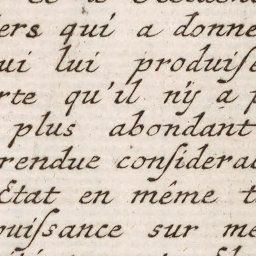 ers qui a donne
ui lui produise
rte qu'il n'y a p
plus abondant
rendue considera
Etat en même t
puissance sur me